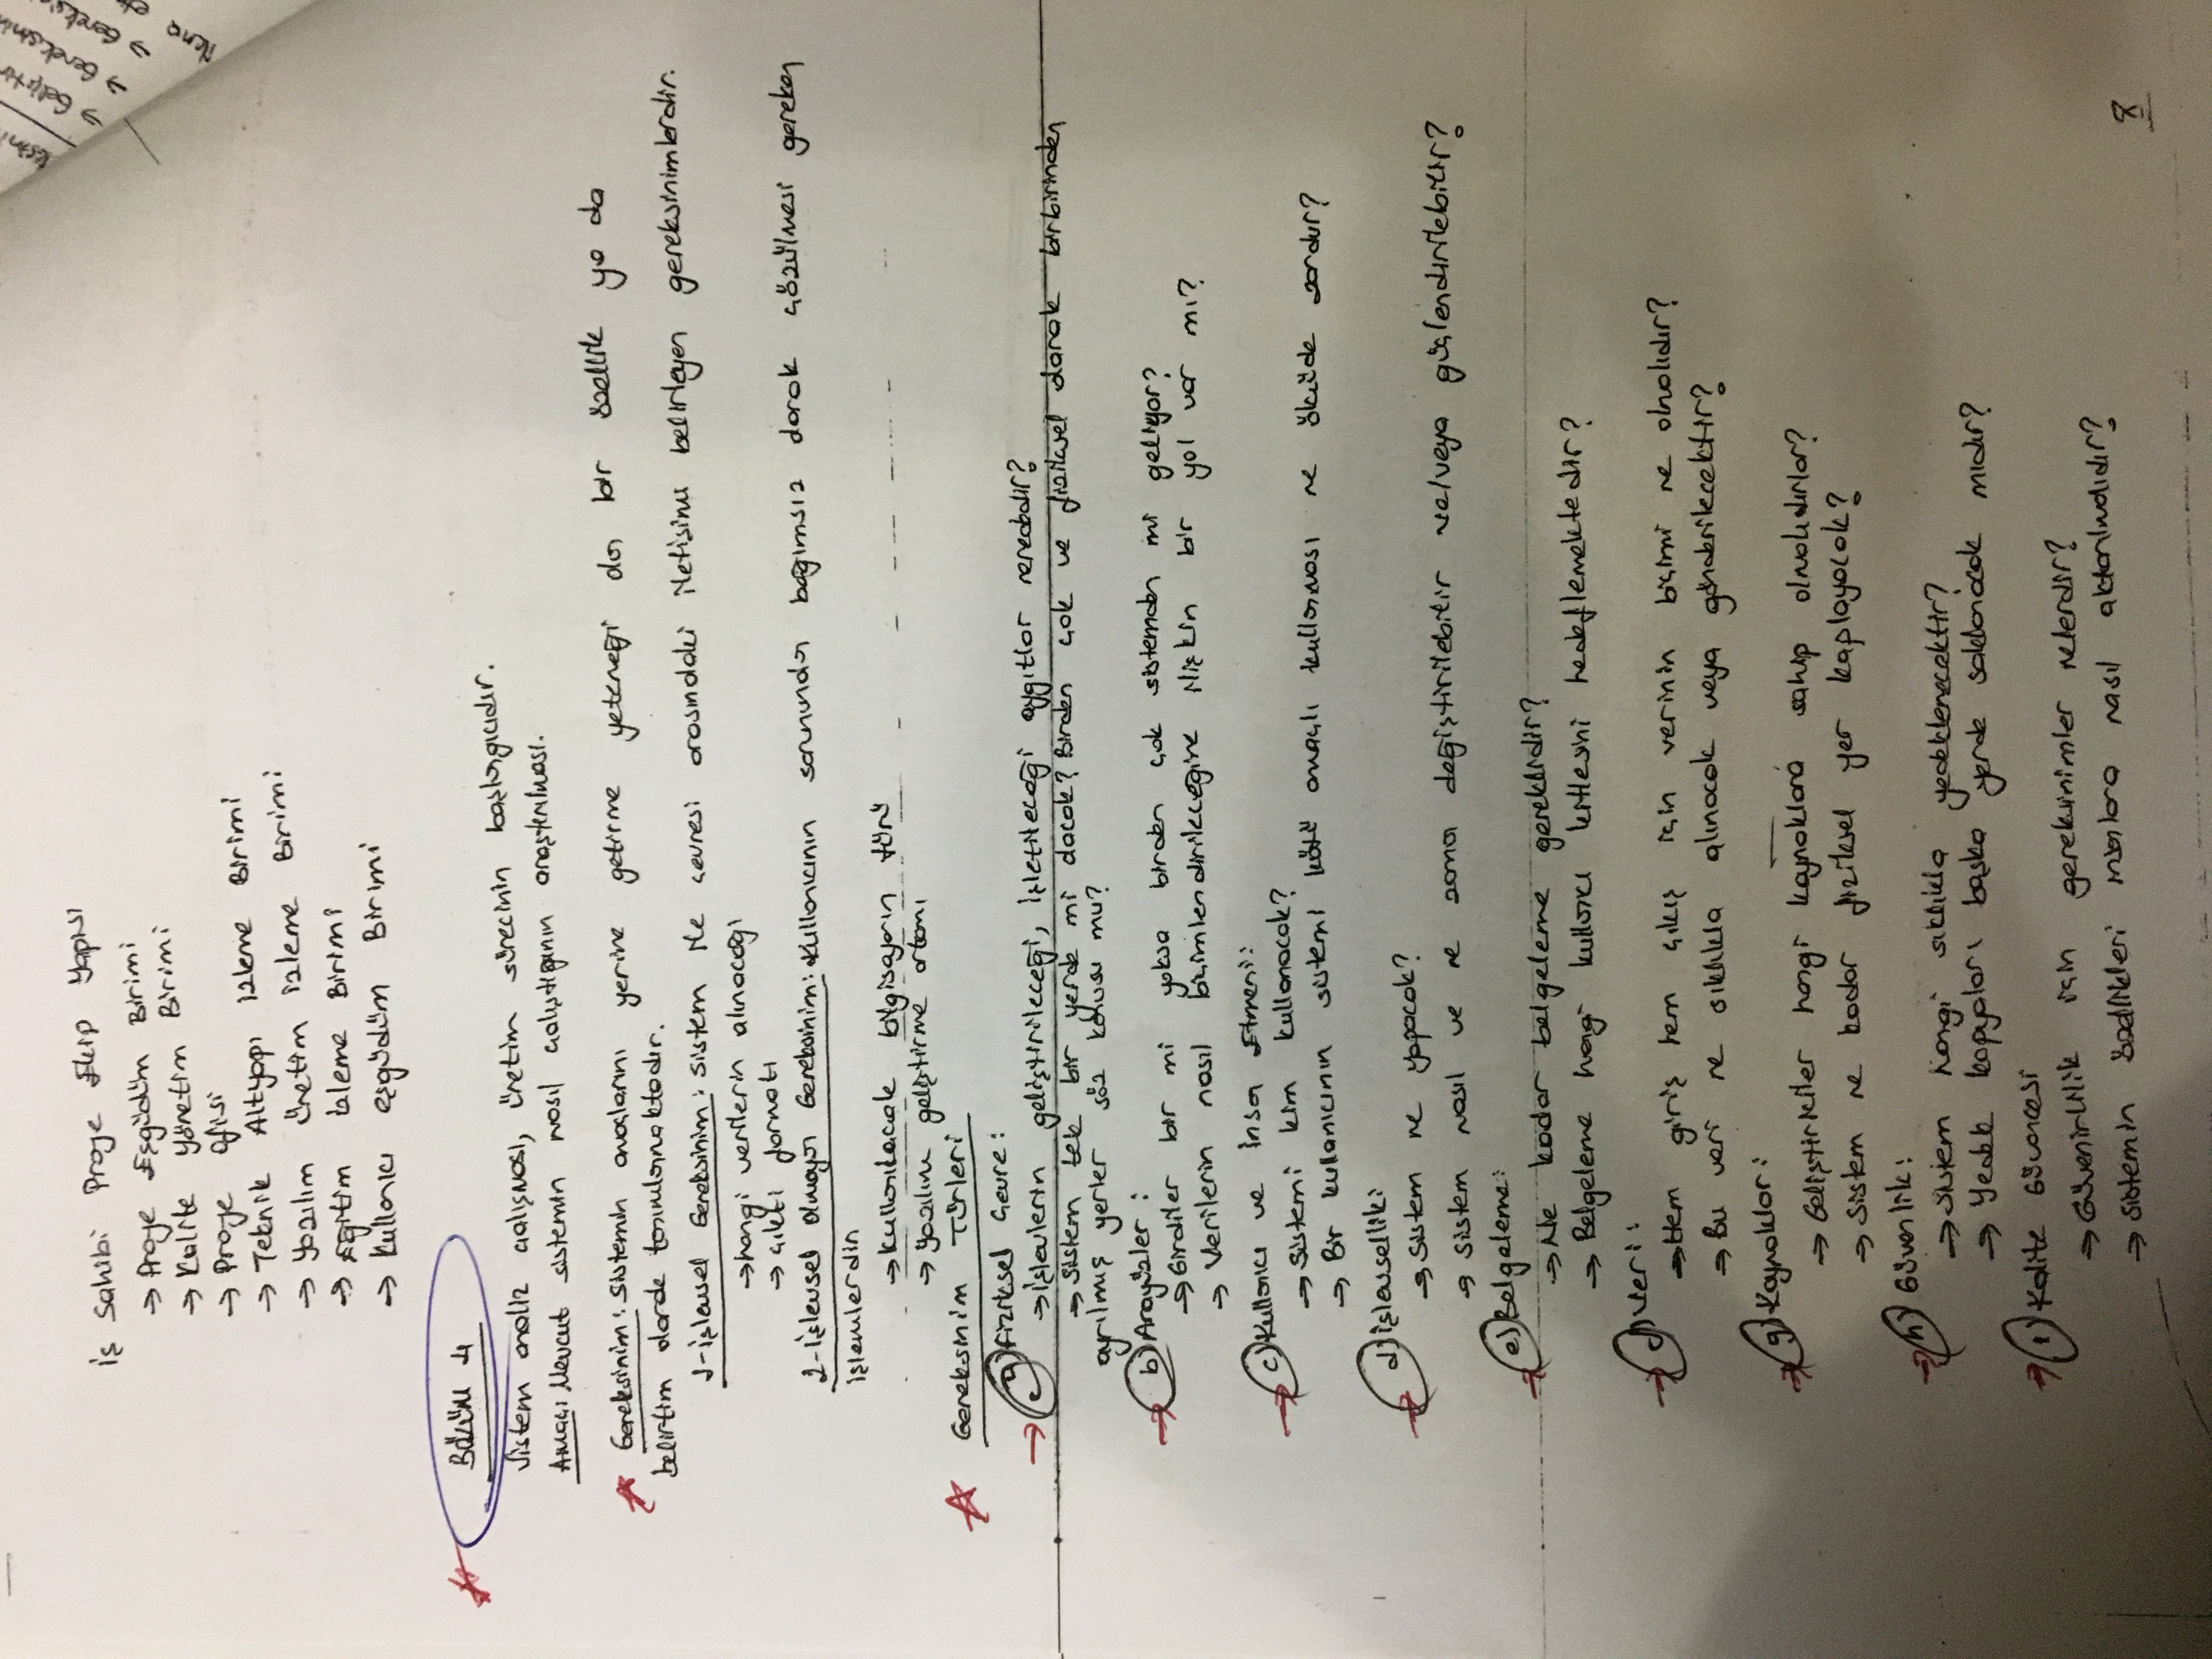 iş Sahibi Proje Ekip Yapısı
→ Proje Eşgüdüm Birimi
→ Kalite Yönetim Birimi
→ Proje Ofisi
→ Teknik Altyapı izleme Birimi
→ Yazılım üretim izleme Birimi
→ Eğitim izleme Birimi
→ Kullanıcı eşgüdüm Birimi
BÖLÜM 4
Sistem analiz çalışması, üretim sürecinin başlangıcıdır.
Amaç: Mevcut sistemin nasıl çalıştığının araştırılması.
Gereksinim: Sistemin amaçlarını yerine getirme yeteneği olan bir özellik ya da
belirtim olarak tanımlanmaktadır.
1-işlevsel Gereksinim: Sistem ile çevresi arasındaki iletişimi belirleyen gereksinimlerdir.
→ hangi verilerin alınacağı
→ çıktı formatı
2-işlevsel olmayan Gereksinim: Kullanıcının sorunundan bağımsız olarak çözülmesi gereken
işlemlerdin
→ kullanılacak bilgisayarın türü
→ yazılım geliştirme ortamı
Gereksinim Türleri
a) fiziksel Çevre:
→ işlevlerin geliştirileceği, işletileceği aygıtlar nerededir?
→ Sistem tek bir yerde mi olacak? Birden çok ve fiziksel olarak birbirinden
ayrılmış yerler söz konusu mu?
b) Arayüzler :
→ Girdiler bir mi yoksa birden çok sistemden mi geliyor?
→ Verilerin nasıl biçimlendirileceğine ilişkin bir yol var mı?
c) Kullanıcı ve insan Etmeni:
→ Sistemi kim kullanacak?
→ Bir kullanıcının sistemi kötü amaçlı kullanması ne ölçüde zordur?
d) işlevsellik:
→ Sistem ne yapacak?
→ Sistem nasıl ve ne zaman değiştirilebilir ve/veya güçlendirilebilir?
e) Belgeleme:
→ Ne kadar belgeleme gereklidir?
→ Belgeleme hangi kullanıcı kitlesini hedeflemektedir?
f) Veri:
→ Hem giriş hem çıkış için verinin biçimi ne olmalıdır?
→ Bu veri ne sıklıkla alınacak veya gönderilecektir?
g) Kaynaklar:
→ Geliştiriciler hangi kaynaklara sahip olmalıdırlar?
→ Sistem ne kadar fiziksel yer kaplayacak?
h) Güvenlik:
→ Sistem hangi sıklıkla yedeklenecektir?
→ Yedek kopyaları başka yerde saklanacak mıdır?
ı) Kalite Güvencesi
→ Güvenirlilik için gereksinimler nelerdir?
→ Sistemin özellikleri insanlara nasıl aktarılmalıdır?
8